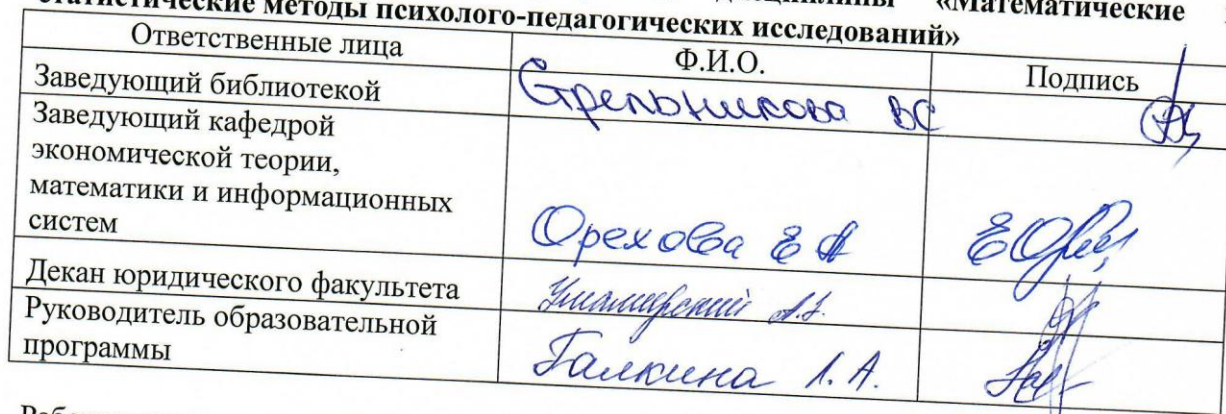 «Математические
статистические методы психолого-педагогических исследований»
Ответственные лица Ф.И.О. Подпись
Заведующий библиотекой Стрельникова ВС
Заведующий кафедрой
экономической теории,
математики и информационных
систем Орехова Е А
Декан юридического факультета
Руководитель образовательной
программы Галкина Л.А.